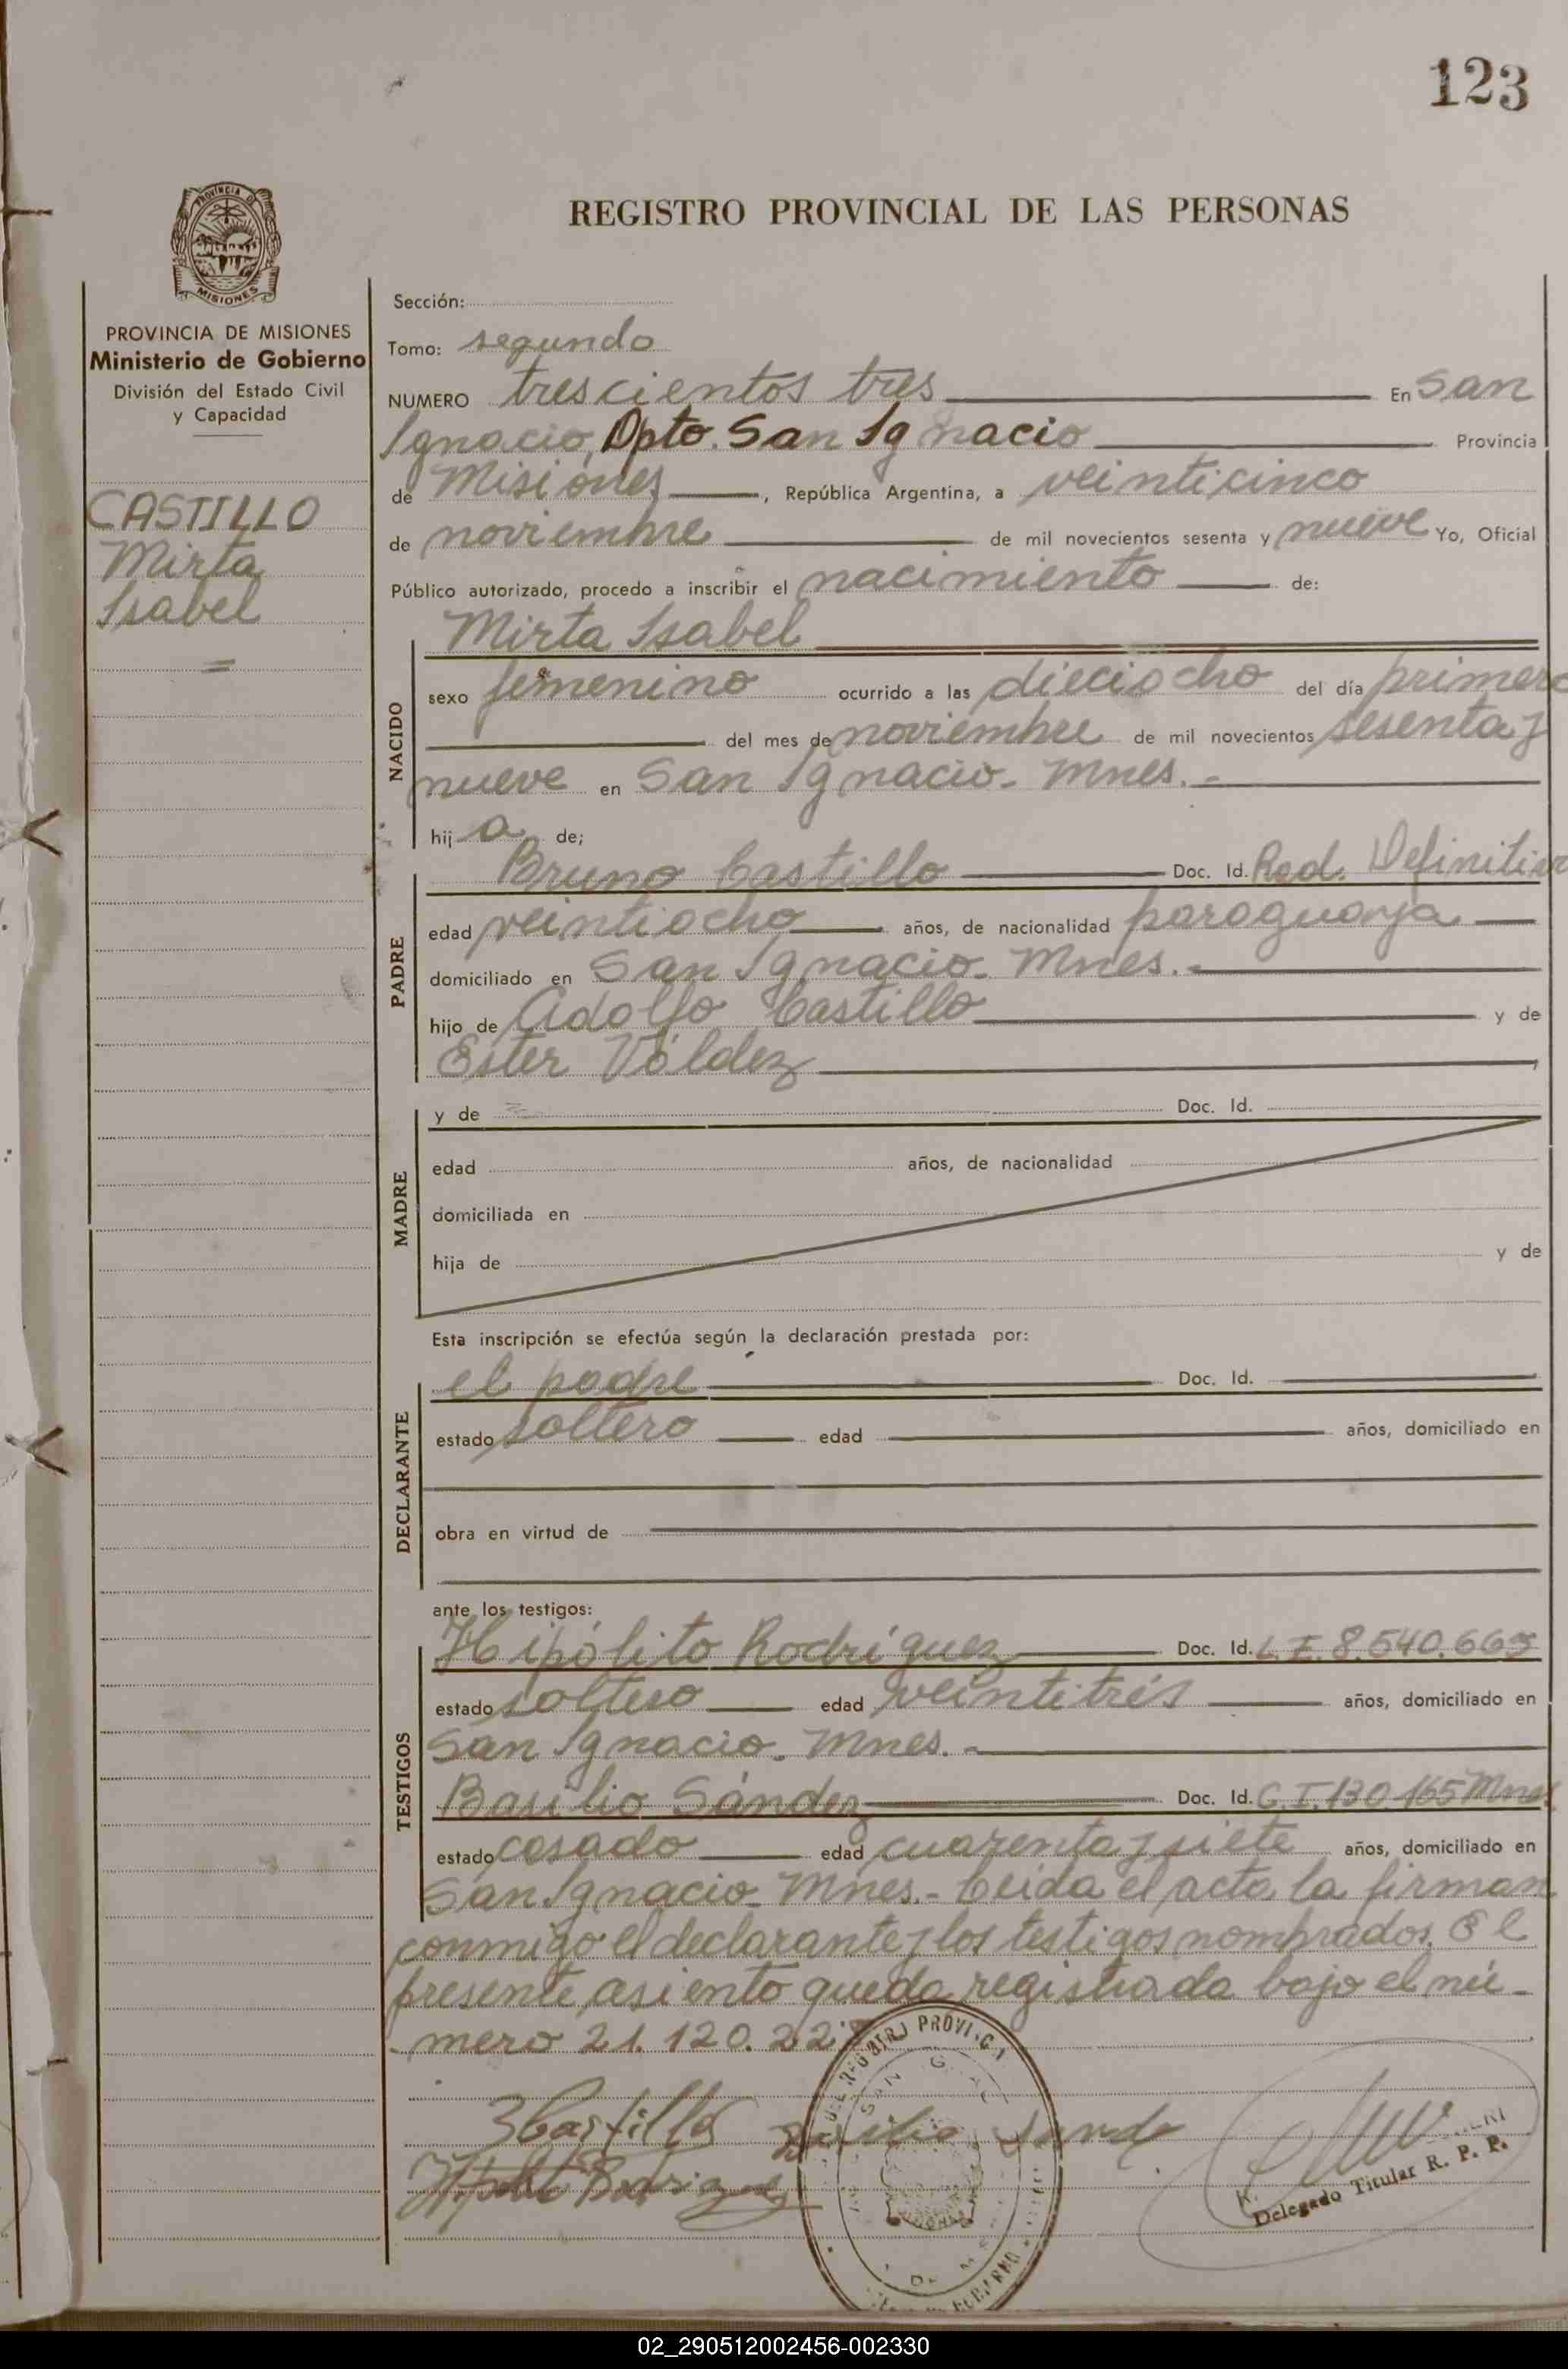 123
PROVINCIA DE
MISIONES
REGISTRO PROVINCIAL DE LAS PERSONAS
PROVINCIA DE MISIONES
Ministerio de Gobierno
División del Estado Civil
y Capacidad
CASTILLO
Mirta
Isabel
Sección:
Tomo: segundo
NUMERO trescientos tres En San
Ignacio, Dpto. San Ignacio Provincia
de Misiones, República Argentina, a veinticinco
de noviembre de mil novecientos sesenta y nueve Yo, Oficial
Público autorizado, procedo a inscribir el nacimiento de:
NACIDO
Mirta Isabel
sexo femenino ocurrido a las dieciocho del día primero
del mes de noviembre de mil novecientos sesenta y
nueve en San Ignacio - Mnes.-
hij a de;
PADRE
Bruno Castillo Doc. Id. Rad. Definitiva
edad veintiocho años, de nacionalidad paraguaya
domiciliado en San Ignacio - Mnes.-
hijo de Adolfo Castillo y de
Ester Váldez
MADRE
y de Doc. Id.
edad años, de nacionalidad
domiciliada en
hija de y de
Esta inscripción se efectúa según la declaración prestada por:
DECLARANTE
el padre Doc. Id.
estado soltero edad años, domiciliado en
obra en virtud de
ante los testigos:
TESTIGOS
Hipólito Rodríguez Doc. Id. L.E. 8.540.665
estado soltero edad veintitrés años, domiciliado en
San Ignacio - Mnes.-
Basilio Sández Doc. Id. C.I. 130.165 Mnes
estado casado edad cuarenta y siete años, domiciliado en
San Ignacio - Mnes.- Leida el acta la firman
conmigo el declarante y los testigos nombrados. El
presente asiento queda registrada bajo el nú-
mero 21.120.22
BCastillo Basilio Sande
Hipolito Rodriguez
Delegado Titular R. P. P.
02_290512002456-002330